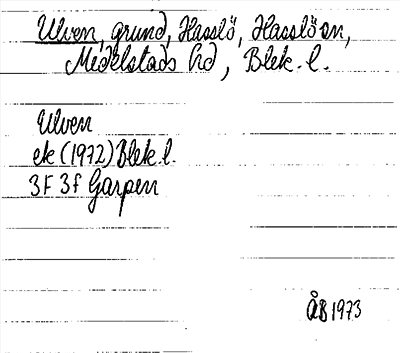 Ulven, grund, Hasslö, Hasslöen,
Medelstads hd, Blek. l.
Ulven
ek (1972) Blek l.
3F 3f Garpen
ÅB 1973